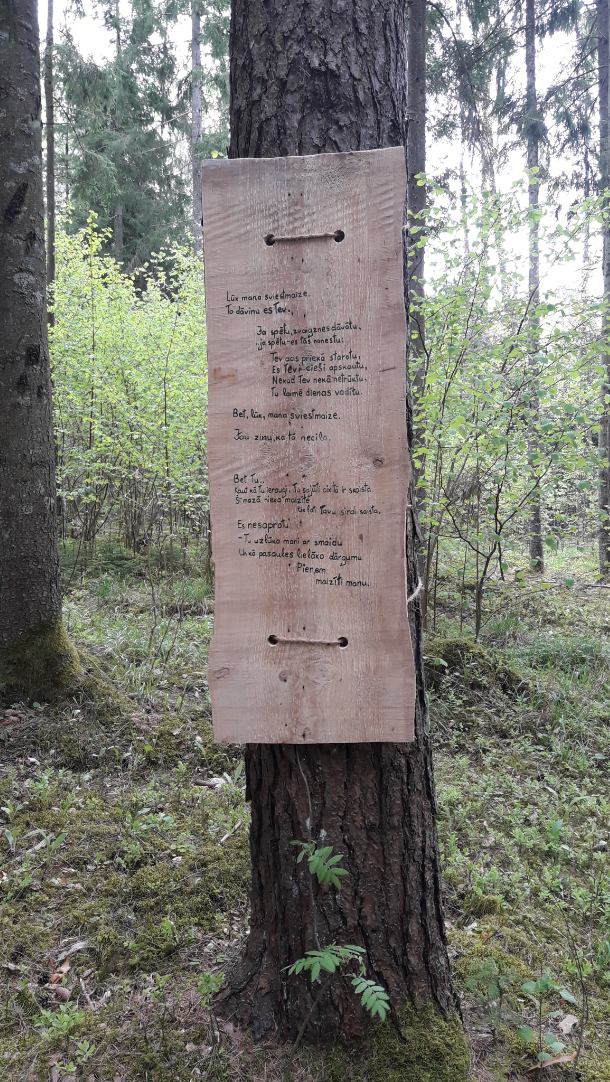 Lūk mana sviestmaize.
To dāvinu es Tev.
Ja spētu, zvaigznes dāvātu,
ja spētu-es tās nonestu:
Tev acis priekā starotu,
Es Tevi cieši apskautu,
Nekad Tev nekā netrūktu,
Tu laimē dienas vadītu.
Bet, lūk, mana sviestmaize.
Jau zinu, ka tā necila.
Bet Tu..
Kaut kā Tu ieraugi, Tu sajūti cik tā ir skaista
Šī mazā nieka maizīte
Tavu sirdi saista.
Es nesaprotu
-Tu uzlūko mani ar smaidu
Un kā pasaules lielāko dārgumu
Pieņem
maizīti manu.